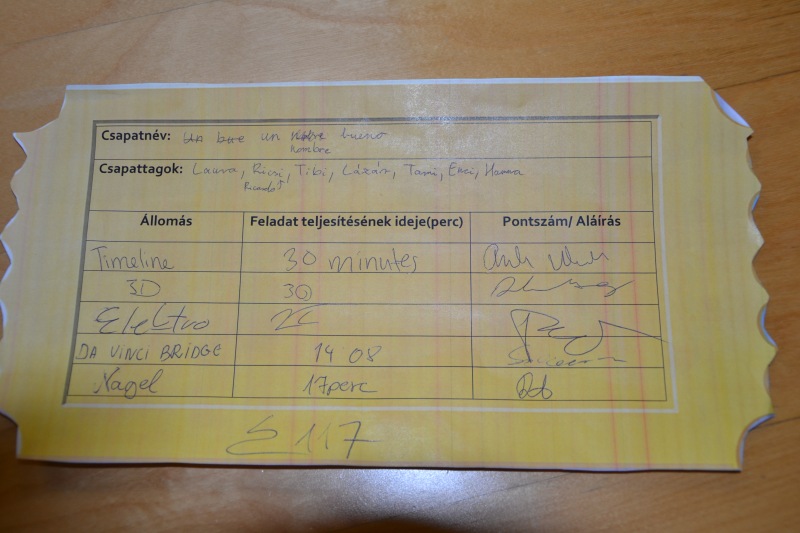 Csapatnév: un bueno
nombre
Csapattagok: Laura, Ricsi, Tibi, Lázár, Tami, Enci, Hanna
Ricardo
Állomás Feladat teljesítésének ideje(perc) Pontszám/ Aláírás
Timeline 30 minutes
3D 30
Elektro
DA VINCI BRIDGE 14 08
Nagel 17perc
Σ 117